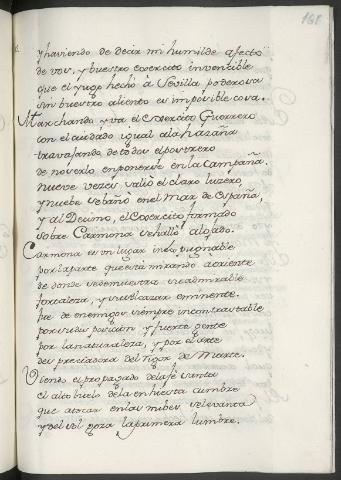 168
y haviendo de decir mi humilde afecto
de vos, y vuestro exercito invencible
que el yugo hecho à Sevilla poderosa
sin vuestro aliento es imposible cosa.
Marchando yva el Exercito Guerrero
con el cuidado igual ala hazaña
travajando de todos el postrero
de noverlo enponerse en la Campaña.
nueve vezes salió el claro luzero,
y nuebe se bañò en el Mar de España,
y al Decimo, el Exercito formado
sobre Carmona se hallò alojado.
Carmona es un lugar inexpugnable
por la parte que está mirando à oriente
de donde se demuestra su admirable
fortaleza, y su alcazar eminente.
fue de enemigos siempre incontrastable
por su disposicion y fuerte gente
por la naturaleza, y por el arte
despreciadora del rigor de Marte.
Viendo el propagado dela fè santa
el alto buelo dela enhiesta cumbre
que a tocar en las nubes se levanta
y del sol goza la primera lumbre.